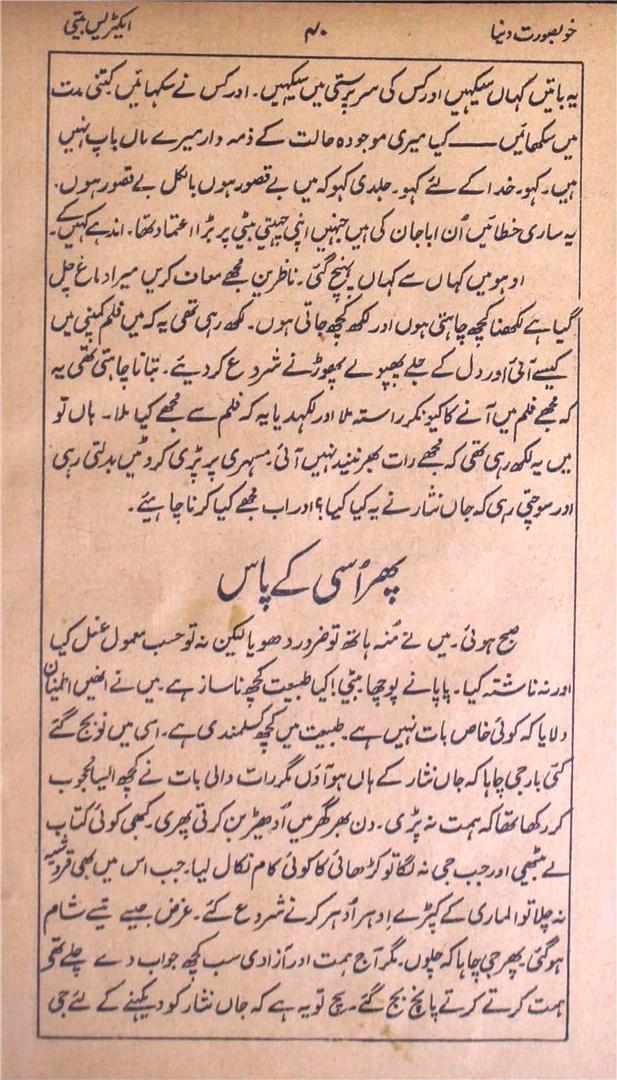 خوبصورت دنیا
۴۰
ایکٹریس بیتی
یہ باتیں کہاں سیکھیں اور کس کی سرپرستی میں سیکہیں۔ اور کس نے سکہائیں کتنی مدت
میں سکھائیں —— کیا میری موجودہ حالت کے ذمہ دار میرے ماں باپ نہیں
ہیں۔ کہو۔ خدا کے لئے کہو۔ جلدی کہو کہ میں بے قصور ہوں بالکل بے قصور ہوں۔
یہ ساری خطائیں اُن ابا جان کی ہیں جنہیں اپنی چہیتی بیٹی پر بڑا اعتماد تھا۔ اندہے کہیں کے۔
اوہو میں کہاں سے کہاں پہنچ گئی۔ ناظرین مجھے معاف کریں میرا دماغ چل
گیا ہے لکھنا کچھ چاہتی ہوں اور لکھ کچھ جاتی ہوں۔ لکھ رہی تھی یہ کہ میں فلم کمپنی میں
کیسے آئی اور دل کے جلے پھپولے پھوڑنے شروع کر دیئے۔ بتانا چاہتی تھی یہ
کہ مجھے فلم میں آنے کا کیونکر راستہ ملا اور لکہدیا یہ کہ فلم سے مجھے کیا ملا۔ ہاں تو
میں یہ لکھ رہی تھی کہ مجھے رات بھر نیند نہیں آئی۔ مسہری پر پڑی کروٹیں بدلتی رہی
اور سوچتی رہی کہ جاں نثار نے یہ کیا کیا؟ اور اب مجھے کیا کرنا چاہیئے۔
پھر اُسی کے پاس
صبح ہوئی۔ میں نے مُنہ ہاتھ تو ضرور دھویا لیکن نہ تو حسب معمول غسل کیا
اور نہ ناشتہ کیا۔ پاپا نے پوچھا بیٹی! کیا طبیعت کچھ ناساز ہے۔ میں نے انھیں اطمینان
دلایا کہ کوئی خاص بات نہیں ہے۔ طبیعت میں کچھ کسلمندی ہے۔ اسی میں نو بج گئے
کئی بار جی چاہا کہ جاں نثار کے ہاں ہو آؤں مگر رات والی بات نے کچھ ایسا محجوب
کر رکھا تھا کہ ہمت نہ پڑی۔ دن بھر گھر میں اُدھیڑ بن کرتی پھری۔ کبھی کوئی کتاب
لے بیٹھی اور جب جی نہ لگا تو کڑھائی کا کوئی کام نکال لیا۔ جب اس میں بھی قروشیہ
نہ چلا تو الماری کے کپڑے اِدہر اُدہر کرنے شروع کئے۔ غرض جیسے تیسے شام
ہو گئی۔ پھر جی چاہا کہ چلوں۔ مگر آج ہمت اور آزادی سب کچھ جواب دے چلے تھی
ہمت کرتے کرتے پانچ بج گئے۔ سچ تو یہ ہے کہ جاں نثار کو دیکہنے کے لئے جی